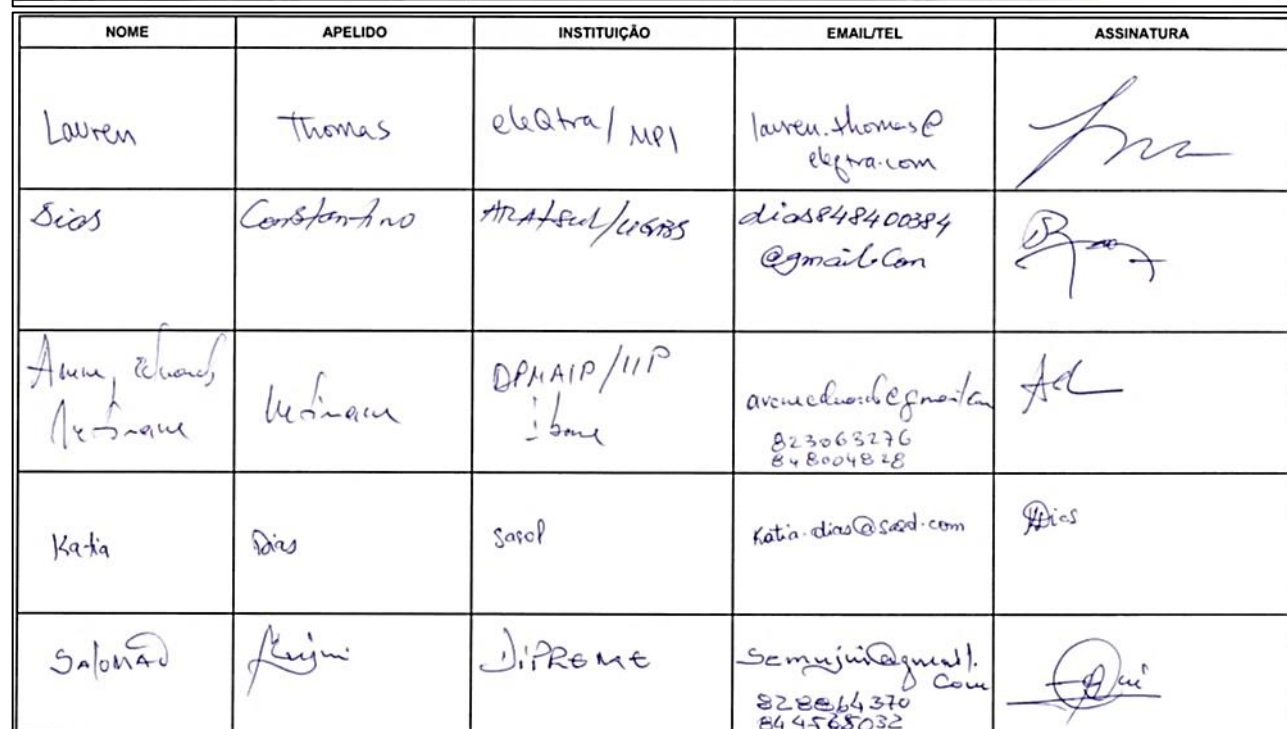 NOME APELIDO INSTITUIÇÃO EMAIL/TEL ASSINATURA
Lauren Thomas eleQtra/ MPI lauren.thomas@
eleqtra.com
Dias Constantino ARA-Sul/UGBS dias848400384
@gmail.Com
DPMAIP/IIP
823063276
848004828
Katia Dias Sasol Katia.dias@sasol.com Dias
SALOMÃO Mujui DIPREME Semujui@gmail.
Com
828864370
844565032